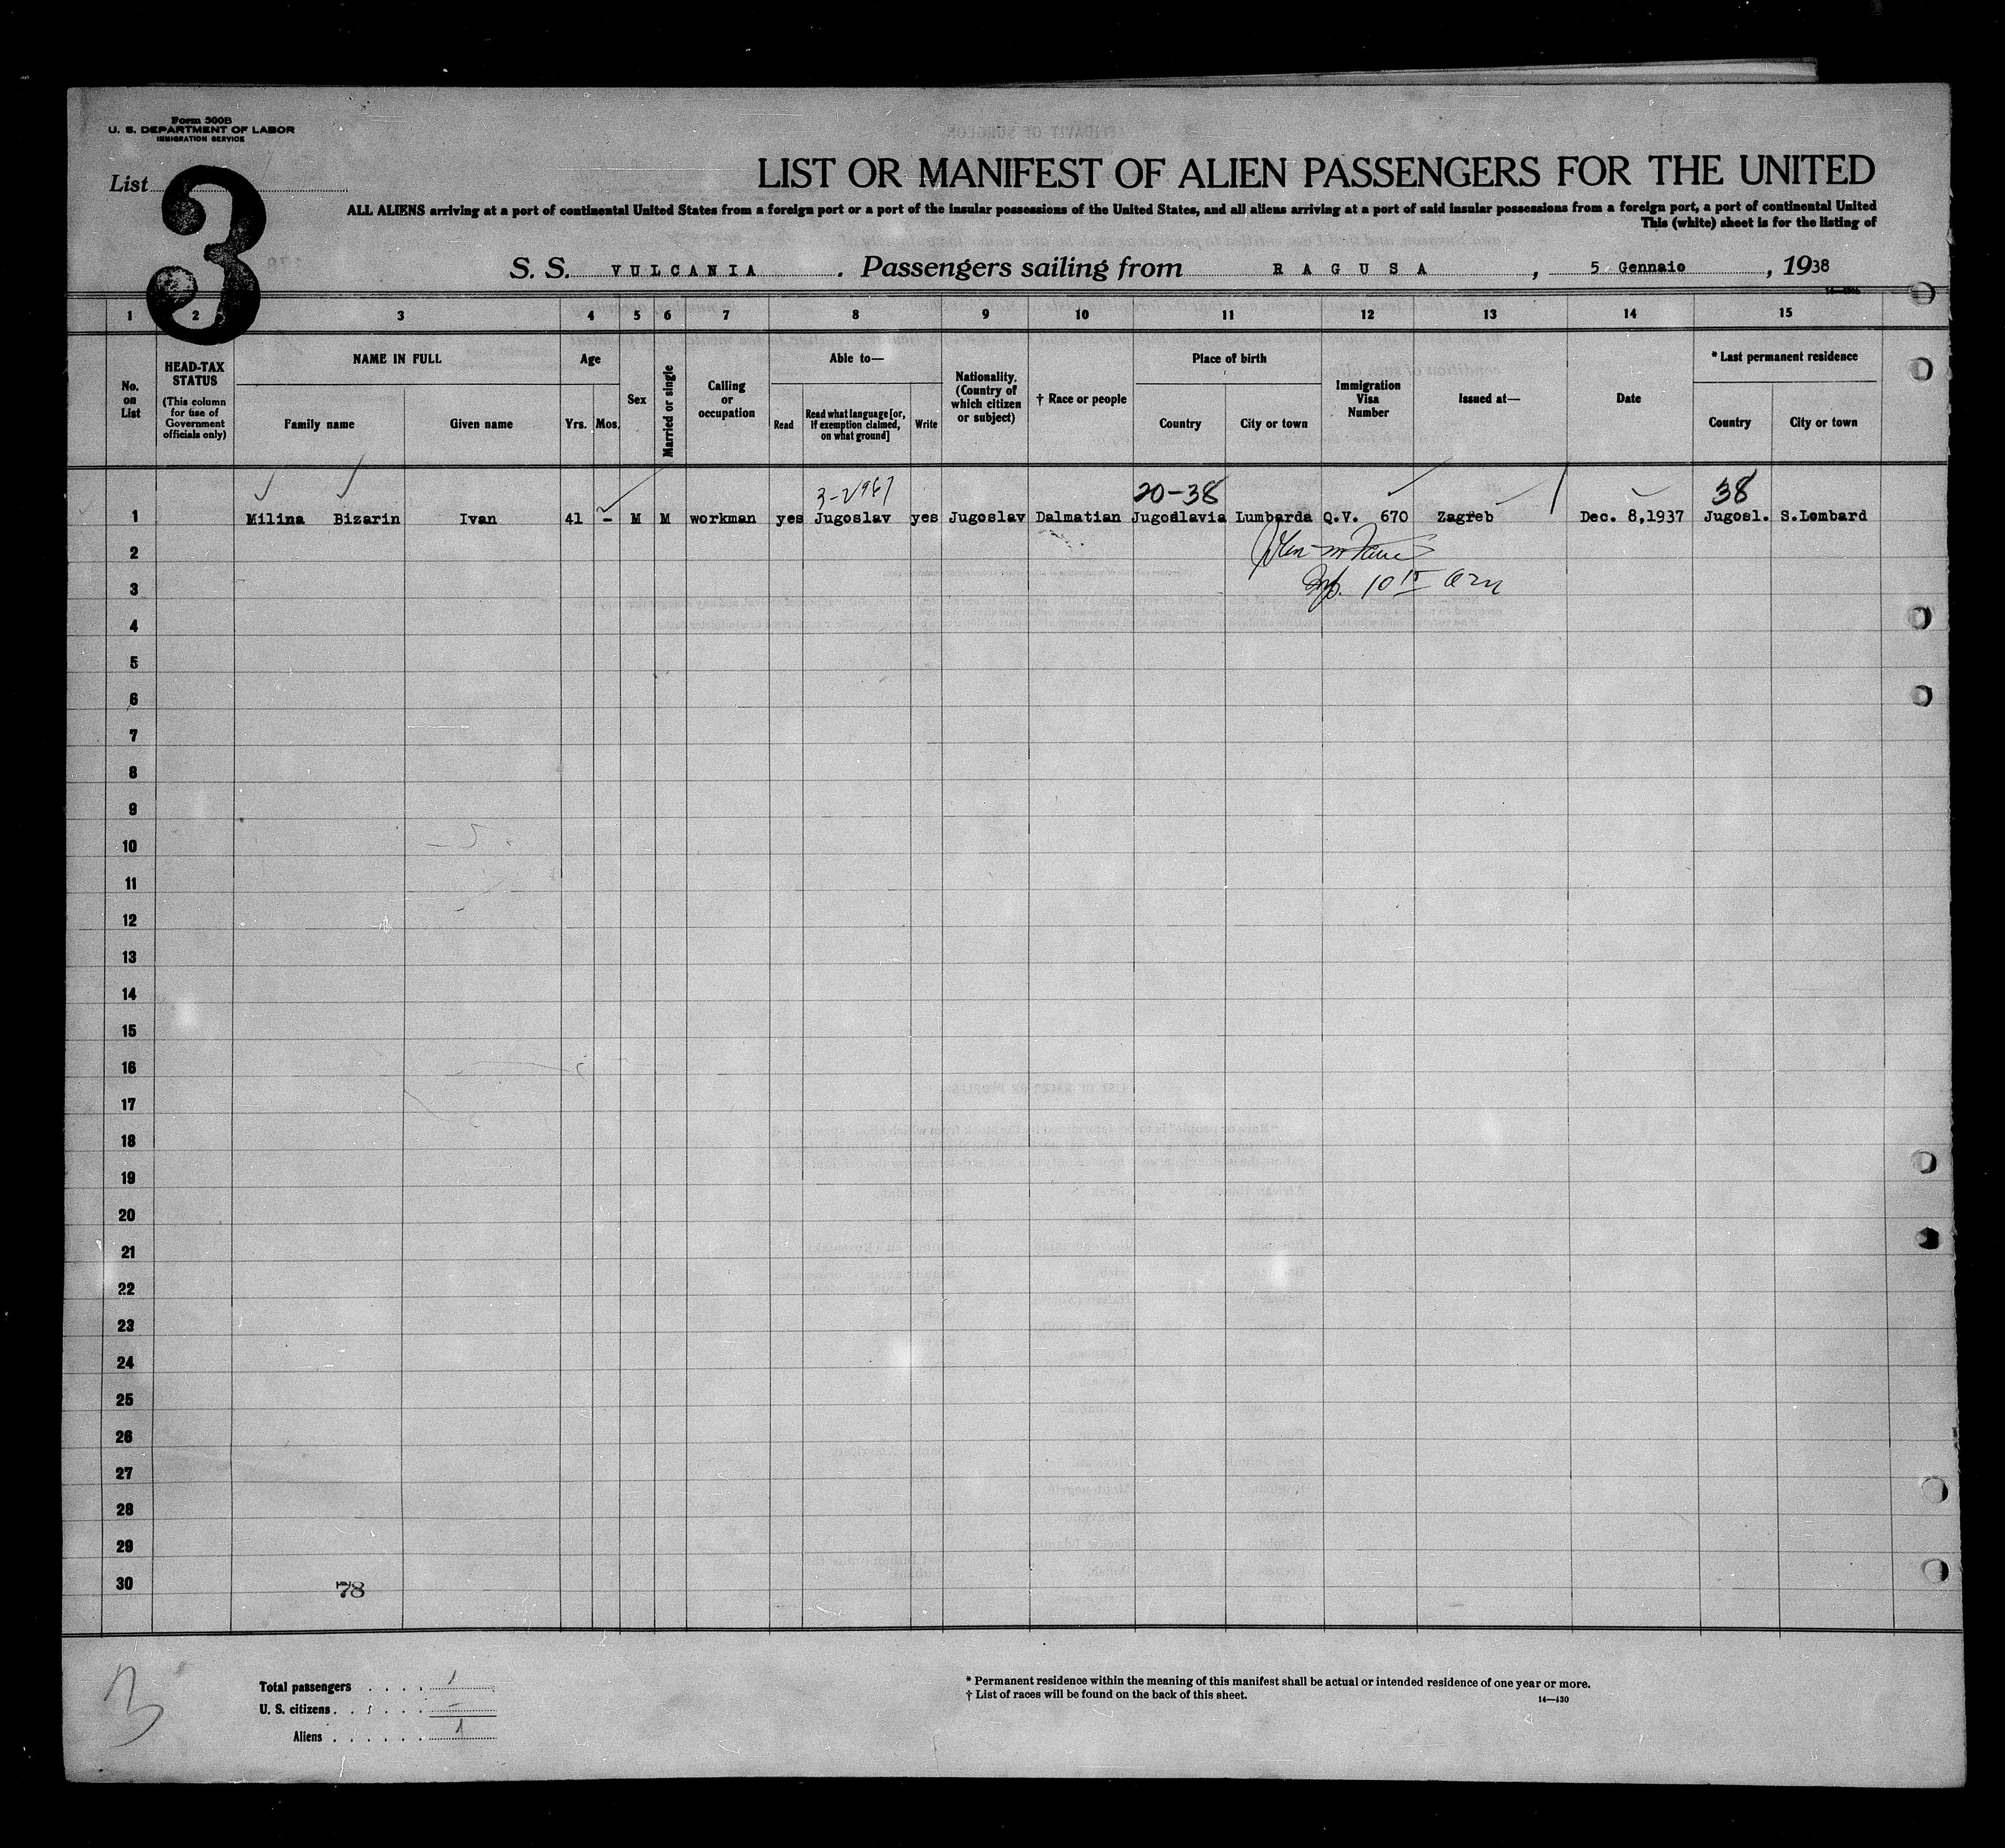 Form 500B
U. S. DEPARTMENT OF LABOR
IMMIGRATION SERVICE
List 3
LIST OR MANIFEST OF ALIEN PASSENGERS FOR THE UNITED
ALL ALIENS arriving at a port of continental United States from a foreign port or a port of the insular possessions of the United States, and all aliens arriving at a port of said insular possessions from a foreign port, a port of continental United
This (white) sheet is for the listing of
S. S. VULCANIA . Passengers sailing from RAGUSA , 5 Gennaio , 1938
1 2 3 4 5 6 7 8 9 10 11 12 13 14 15
No. on List
HEAD-TAX STATUS
(This column for use of Government officials only)
NAME IN FULL
Family name
Given name
Age
Yrs.
Mos.
Sex
Married or single
Calling or occupation
Able to—
Read
Read what language [or, if exemption claimed, on what ground]
Write
Nationality. (Country of which citizen or subject)
† Race or people
Place of birth
Country
City or town
Immigration Visa Number
Issued at—
Date
* Last permanent residence
Country
City or town
20-38 38
1 Milina Bizarin Ivan 41 - M M workman yes Jugoslav yes Jugoslav Dalmatian Jugoslavia Lumbarda Q.V. 670 Zagreb Dec. 8,1937 Jugosl. S.Lombard
2
3
4
5
6
7
8
9
10
11
12
13
14
15
16
17
18
19
20
21
22
23
24
25
26
27
28
29
30
78
3
Total passengers . . . . 1
U. S. citizens . . . . . –
Aliens . . . . . . 1
* Permanent residence within the meaning of this manifest shall be actual or intended residence of one year or more.
† List of races will be found on the back of this sheet.
14—430